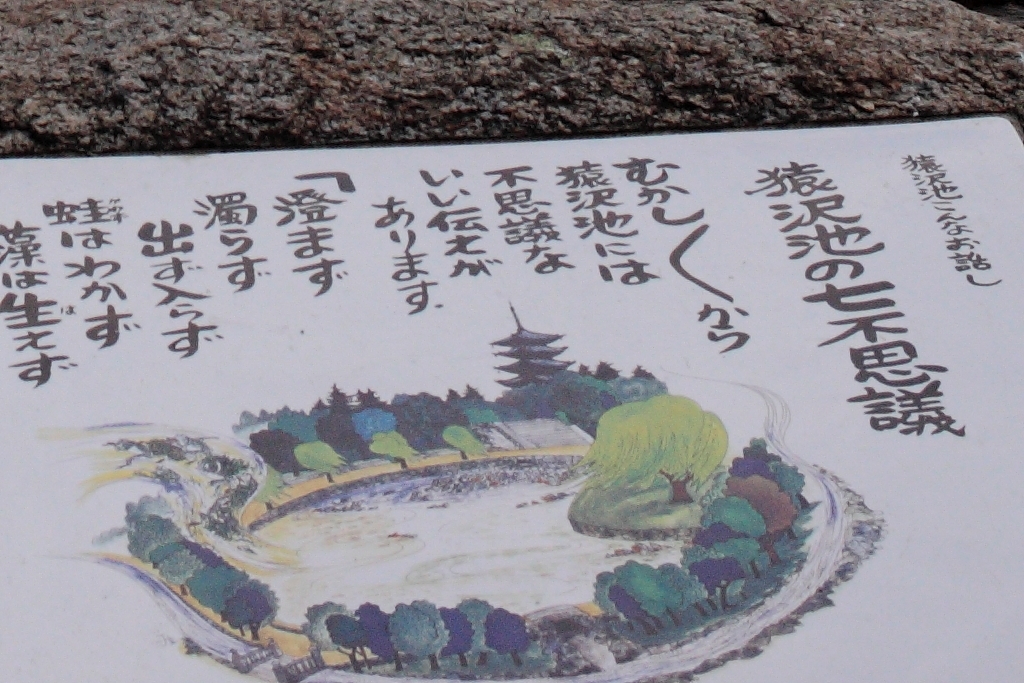 猿沢池こんなお話し
猿沢池の七不思議
むかし〱から
猿沢池には
不思議な
いい伝えが
あります.
「澄まず
濁らず
出ず入らず
蛙はわかず
カワズ
藻は生えず
は